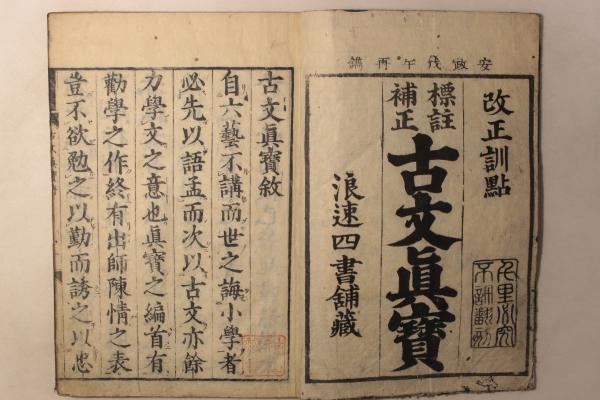 安政戊午再鐫
改正訓點
標註
補正
古文眞寶
浪速四書舖藏
古文眞寶敘
自六藝不講而世之誨小學者
必先以語孟而次以古文亦餘
力學文之意也眞寶之編首有
勸學之作終有出師陳情之表
豈不欲勉之以勤而誘之以忠